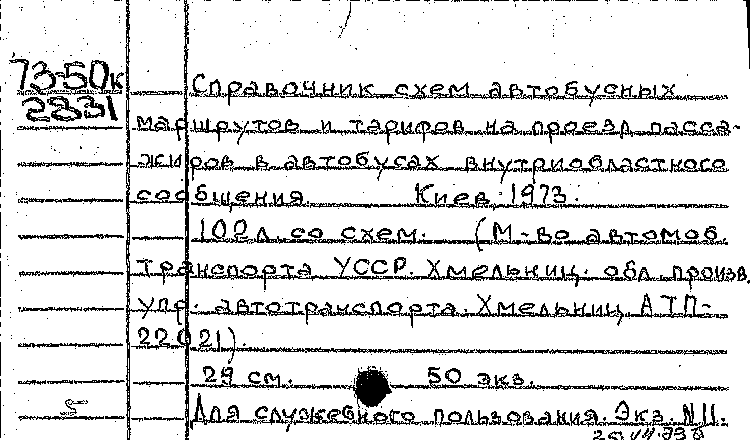 73-50к
2831
Справочник схем автобусных
маршрутов и тарифов на проезд пасса-
жиров в автобусах внутриобластного
сообщения. Киев, 1973.
102л. со схем. (М-во автомоб.
транспорта УССР. Хмельниц. обл. произв.
упр. автотранспорта. Хмельниц. АТП-
22021).
29 см. 50 экз.
Для служебного пользования. Экз. N11.